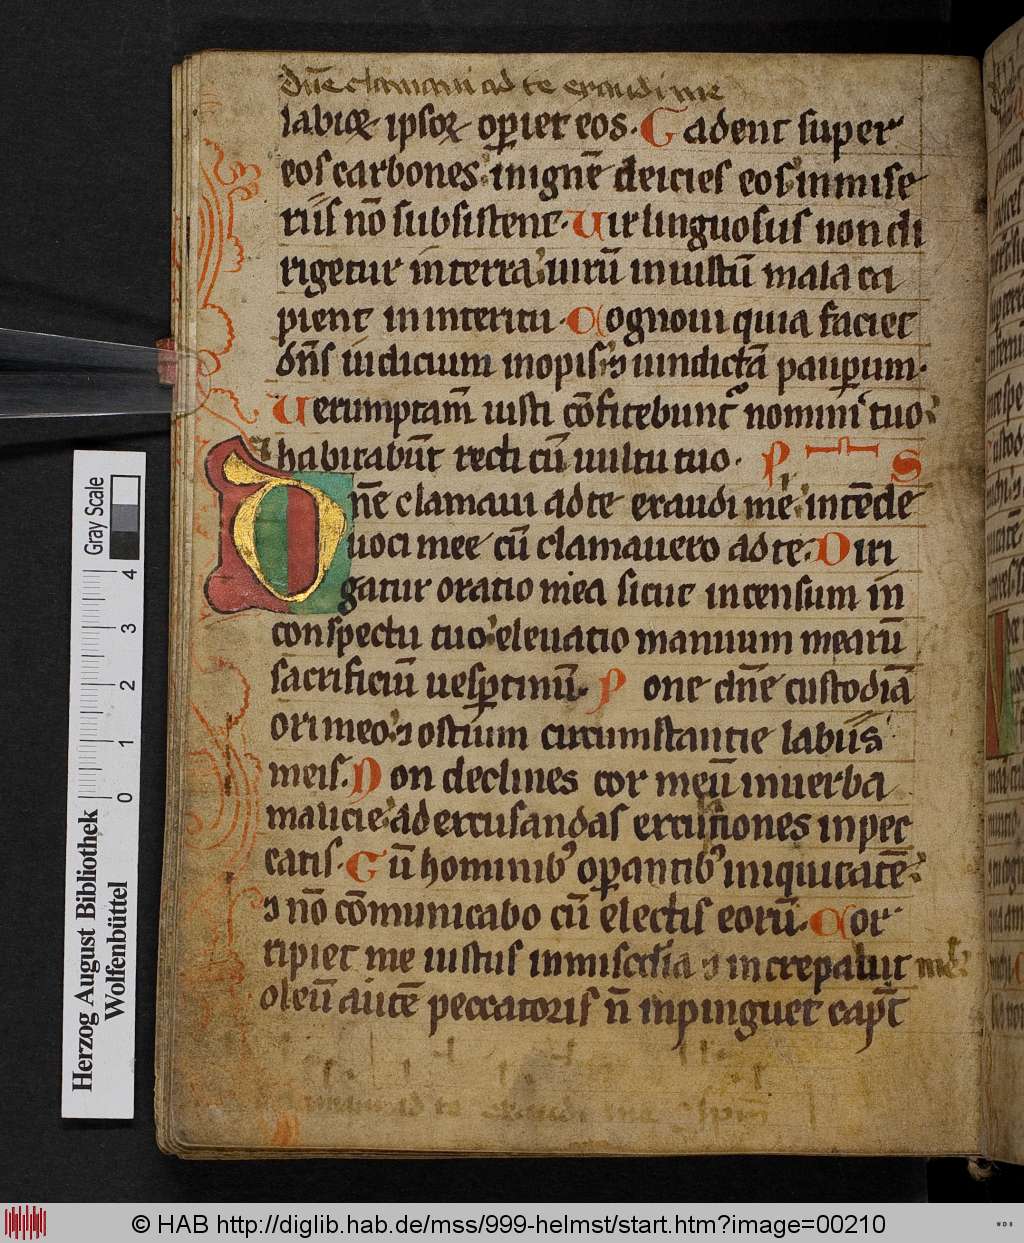 dn̄e clamaui ad te exaudi me
labioꝝ ipsoꝝ oꝑiet eos. Cadent super
eos carbones inignē deicies eos inmise
riis nō subsistent. Uir linguosus non di
rigetur interra uirū iniustū mala ca
pient ininteritu. Cognoui quia faciet
dn̄s iudicium inopis ⁊ uindictā pauꝑum.
Uerumptam̄ iusti cōfitebuntᷣ nomini tuo
⁊ habitabūt recti cū uultu tuo. PS
Dn̄e clamaui adte exaudi me intēde
uoci mee cū clamauero adte. Diri
gatur oratio mea sicut incensum in
conspectu tuo eleuatio manuum mearū
sacrificiū uesꝑtinū. Pone dn̄e custodiā
ori meo ⁊ ostium circumstantie labiis
meis. Non declines cor meū inuerba
malicie ad excusandas excusationes inpec
catis. Cū hominibꝰ oꝑantibꝰ iniquitatē
⁊ nō cōmunicabo cū electis eorū. Cor
ripiet me iustus inmisc̄dia ⁊ increpabit me
oleū autē peccatoris n̄ inpinguet capt̄
clamaui ad te exaudi me
Gray Scale
4 3 2 1 0
Herzog August Bibliothek
Wolfenbüttel
© HAB http://diglib.hab.de/mss/999-helmst/start.htm?image=00210